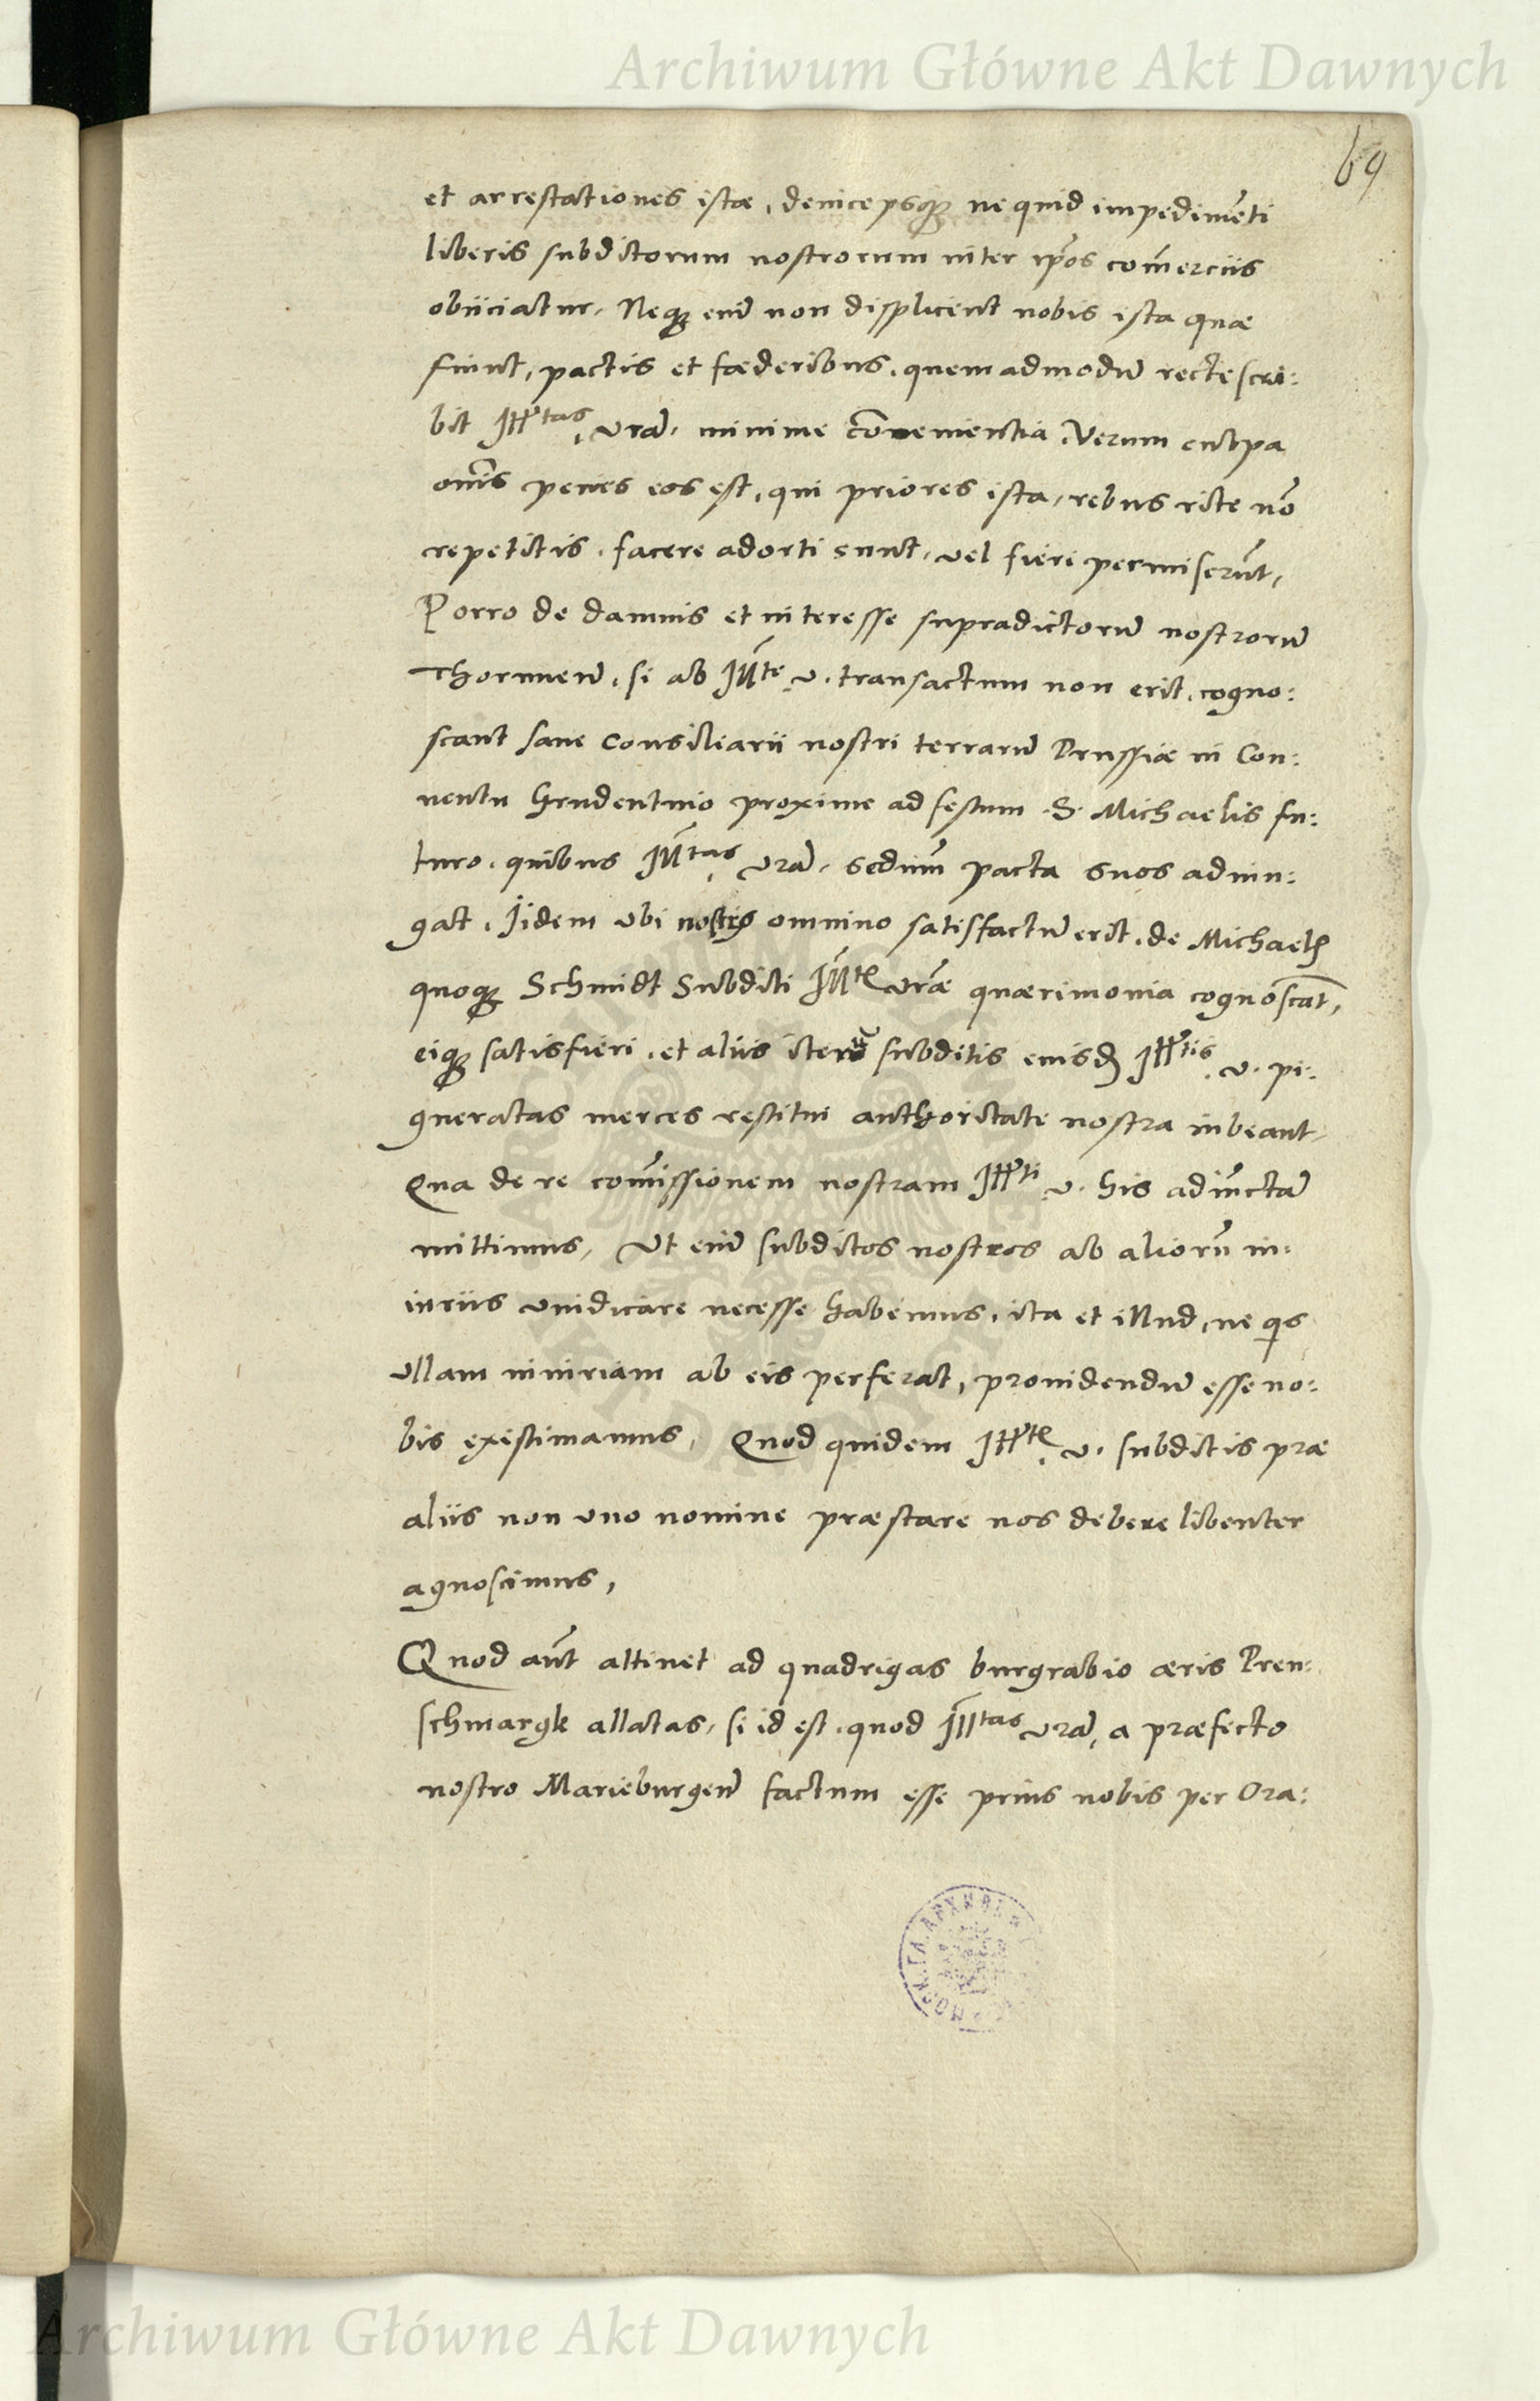 Archiwum Główne Akt Dawnych
69
et arrestationes istæ, deinceps&#xA757; ne quid impedimẽti
liberis subditorum nostrorum inter ip̃os com̃erciis
obiiciatur, Neqꝫ enĩ non displicent nobis ista quæ
fiunt, pactis et fœderibus, quemadmodũ recte scri:
bit Ill^tas vrã, minime cõvenientia, Verum culpa
om̃is penes eos est, qui priores ista, rebus rite nõ
repetitis, facere adorti sunt, vel fieri permiserũt,
Porro de damnis et interesse supradictorũ nostrorũ
Thorunen̄, si ab Ill^te v. transactum non erit, cogno:
scant sane Consiliarii nostri terrarũ Prussiæ in Con:
uentu Grudentino proxime ad festum S. Michaelis fu:
turo, quibus Ill^tas vrã, secdum̄ pacta suos adiun:
gat, Iidem ubi nostris omnino satisfactũ erit, de Michaelis
quoqꝫ Schmidt Subditi Ill^tis vræ̃ quærimonia cognoscãt,
eiqꝫ satisfieri, et aliis iterũ subditis eiusd̃ Ill^tis v. pi:
gneratas merces restitui authoritate nostra iubeant,
Qua de re com̃issionem nostram Ill^ti v. his adiũctã
mittimus, Ut enĩ subditos nostros ab aliorũ in:
iuriis vindicare necesse habemus, ita et illud, ne qis
ullam iniuriam ab eis perferat, prouidendũ esse no:
bis existimamus, Quod quidem Ill^tis v. subditis præ
aliis non uno nomine præstare nos debere libenter
agnoscimus,
Quod aũt attinet ad quadrigas burgrabio æris Pren:
schmargk allatas, si id est, quod Ill^tas vrã, a præfecto
nostro Marieburgen̄ factum esse prius nobis per Ora:
Archiwum Główne Akt Dawnych